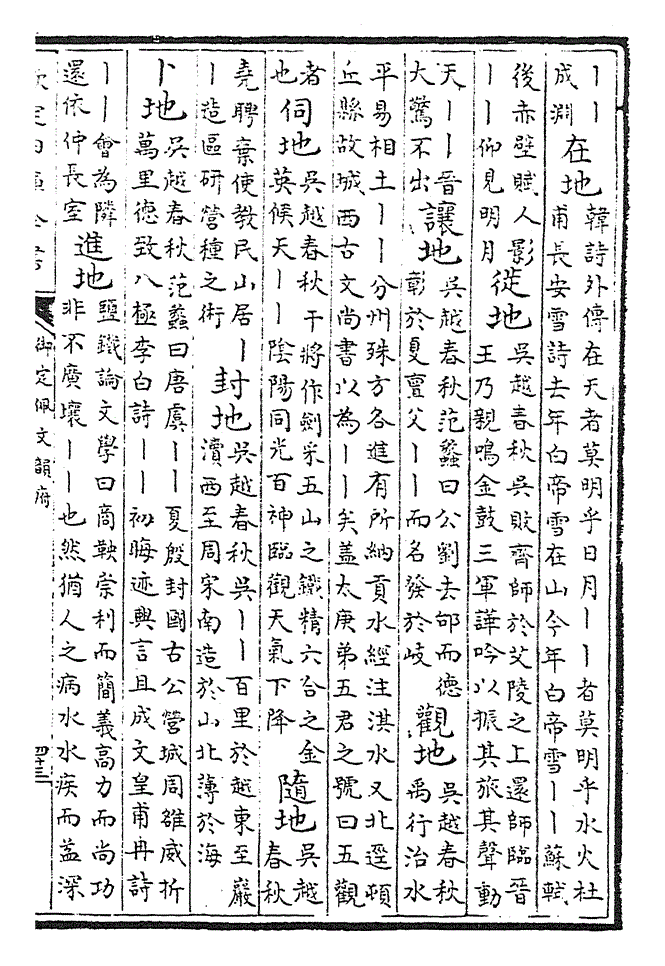 丨丨
成淵
在地
韓詩外傳在天者莫明乎日月丨丨者莫明乎水火杜
甫長安雪詩去年白帝雪在山今年白帝雪丨丨蘇軾
後赤壁賦人影
丨丨仰見明月
徙地
吳越春秋吳敗齊師於艾陵之上還師臨晉
王乃親鳴金鼓三軍譁吟以振其旅其聲動
天丨丨晉
大驚不出
讓地
吳越春秋范蠡曰公劉去邰而德
彰於夏亶父丨丨而名發於岐
觀地
吳越春秋
禹行治水
平易相土丨丨分州殊方各進有所納貢水經注淇水又北逕頓
丘縣故城西古文尚書以為丨丨矣蓋太庚弟五君之號曰五觀
者
也
伺地
吳越春秋干將作劍采五山之鐵精六合之金
英候天丨丨陰陽同光百神臨觀天氣下降
隨地
吳越
春秋
堯聘棄使教民山居丨
丨造區研營種之術
封地
吳越春秋吳丨丨百里於越東至嚴
瀆西至周宋南造於山北薄於海
卜地
吳越春秋范蠡曰唐虞丨丨夏殷封國古公營城周雒威折
萬里德致八極李白詩丨丨初晦迹興言且成文皇甫冉詩
丨丨會為隣
還依仲長室
進地
鹽鐵論文學曰商鞅崇利而簡義高力而尚功
非不廣壤丨丨也然猶人之病水水疾而益深
欽定四庫全書
御定佩文韻府